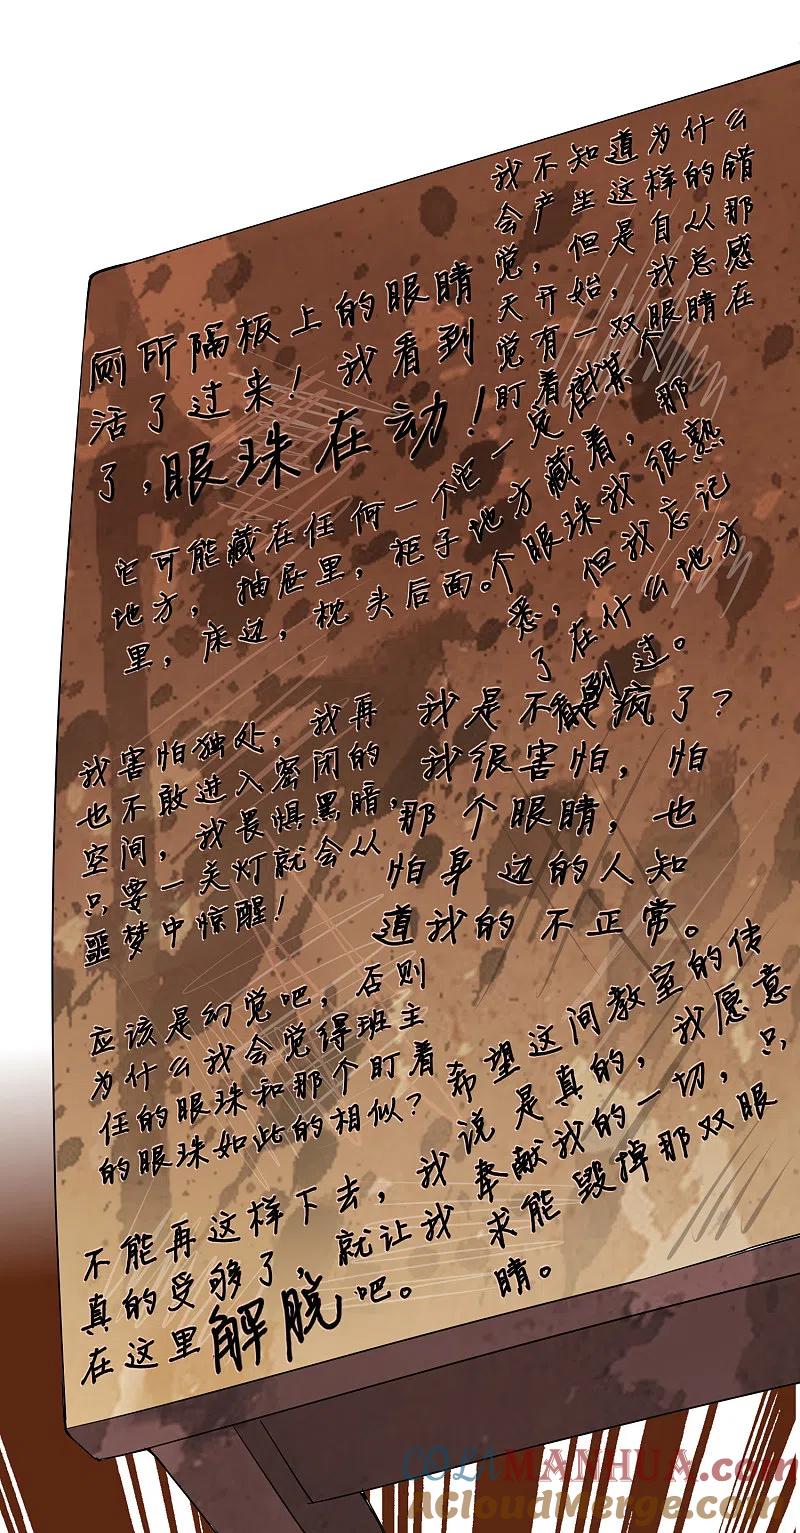 我不知道为什么
会产生这样的错
觉，但是自从那
天开始，我总感
觉有一双眼睛在
盯着我
厕所隔板上的眼睛
活了过来！我看到
了，眼珠在动！
它一定在某个
地方藏着，那
个眼珠我很熟
悉，但我忘记
了在什么地方
看到过。
它可能藏在任何一个
地方，抽屉里，柜子
里，床边，枕头后面。
我害怕独处，我再
也不敢进入密闭的
空间，我畏惧黑暗，
只要一关灯就会从
噩梦中惊醒！
我是不是疯了？
我很害怕，怕
那个眼睛，也
怕身边的人知
道我的不正常。
应该是幻觉吧，否则
为什么我会觉得班主
任的眼珠和那个盯着
的眼珠如此的相似？
不能再这样下去，我
真的受够了，就让我
在这里解脱吧。
希望这间教室的传
说是真的，我愿意
奉献我的一切，只
求能毁掉那双眼
睛。
COLAMANHUA.com
AcloudMerge.com